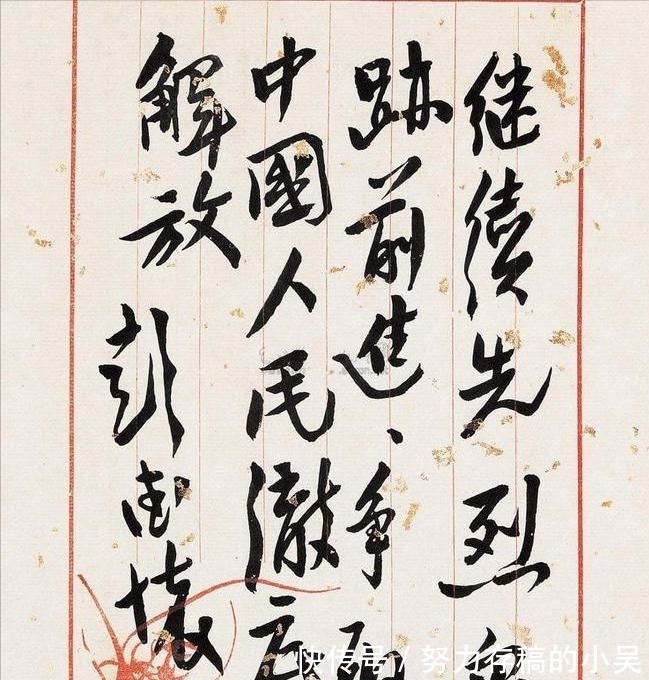 继续先烈
跡前進、争
中國人民澈底
解放 彭德懷
快传号 / 努力存稿的小吴